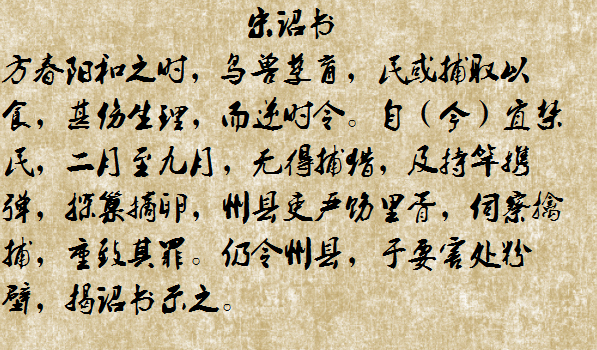 宋诏书
方春阳和之时，鸟兽孳育，民或捕取以
食，甚伤生理，而逆时令。自（今）宜禁
民，二月至九月，无得捕猎，及持竿携
弹，探巢摘卵，州县吏严饬里胥，伺察擒
捕，重致其罪。仍令州县，于要害处粉
壁，揭诏书示之。